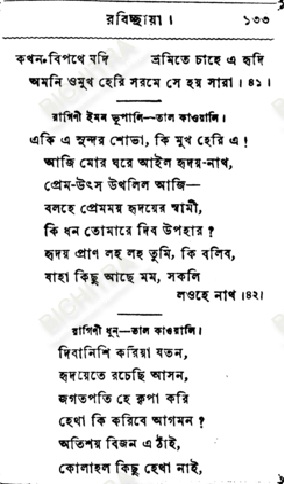 রবিচ্ছায়া। ১৩৩
কখন বিপথে যদি ভ্রমিতে চাহে এ হৃদি
অমনি ওমুখ হেরি সরমে সে হয় সারা। ৪১।
রাগিণী ইমন ভূপালি—তাল কাওয়ালি।
একি এ সুন্দর শোভা, কি মুখ হেরি এ!
আজি মোর ঘরে আইল হৃদয়-নাথ,
প্রেম-উৎস উথলিল আজি—
বলহে প্রেমময় হৃদয়ের স্বামী,
কি ধন তোমারে দিব উপহার?
হৃদয় প্রাণ লহ লহ তুমি, কি বলিব,
যাহা কিছু আছে মম, সকলি
লওহে নাথ।৪২।
রাগিণী ধুন্—তাল কাওয়ালি।
দিবানিশি করিয়া যতন,
হৃদয়েতে রচেছি আসন,
জগতপতি হে কৃপা করি
হেথা কি করিবে আগমন?
অতিশয় বিজন এ ঠাঁই,
কোলাহল কিছু হেথা নাই,